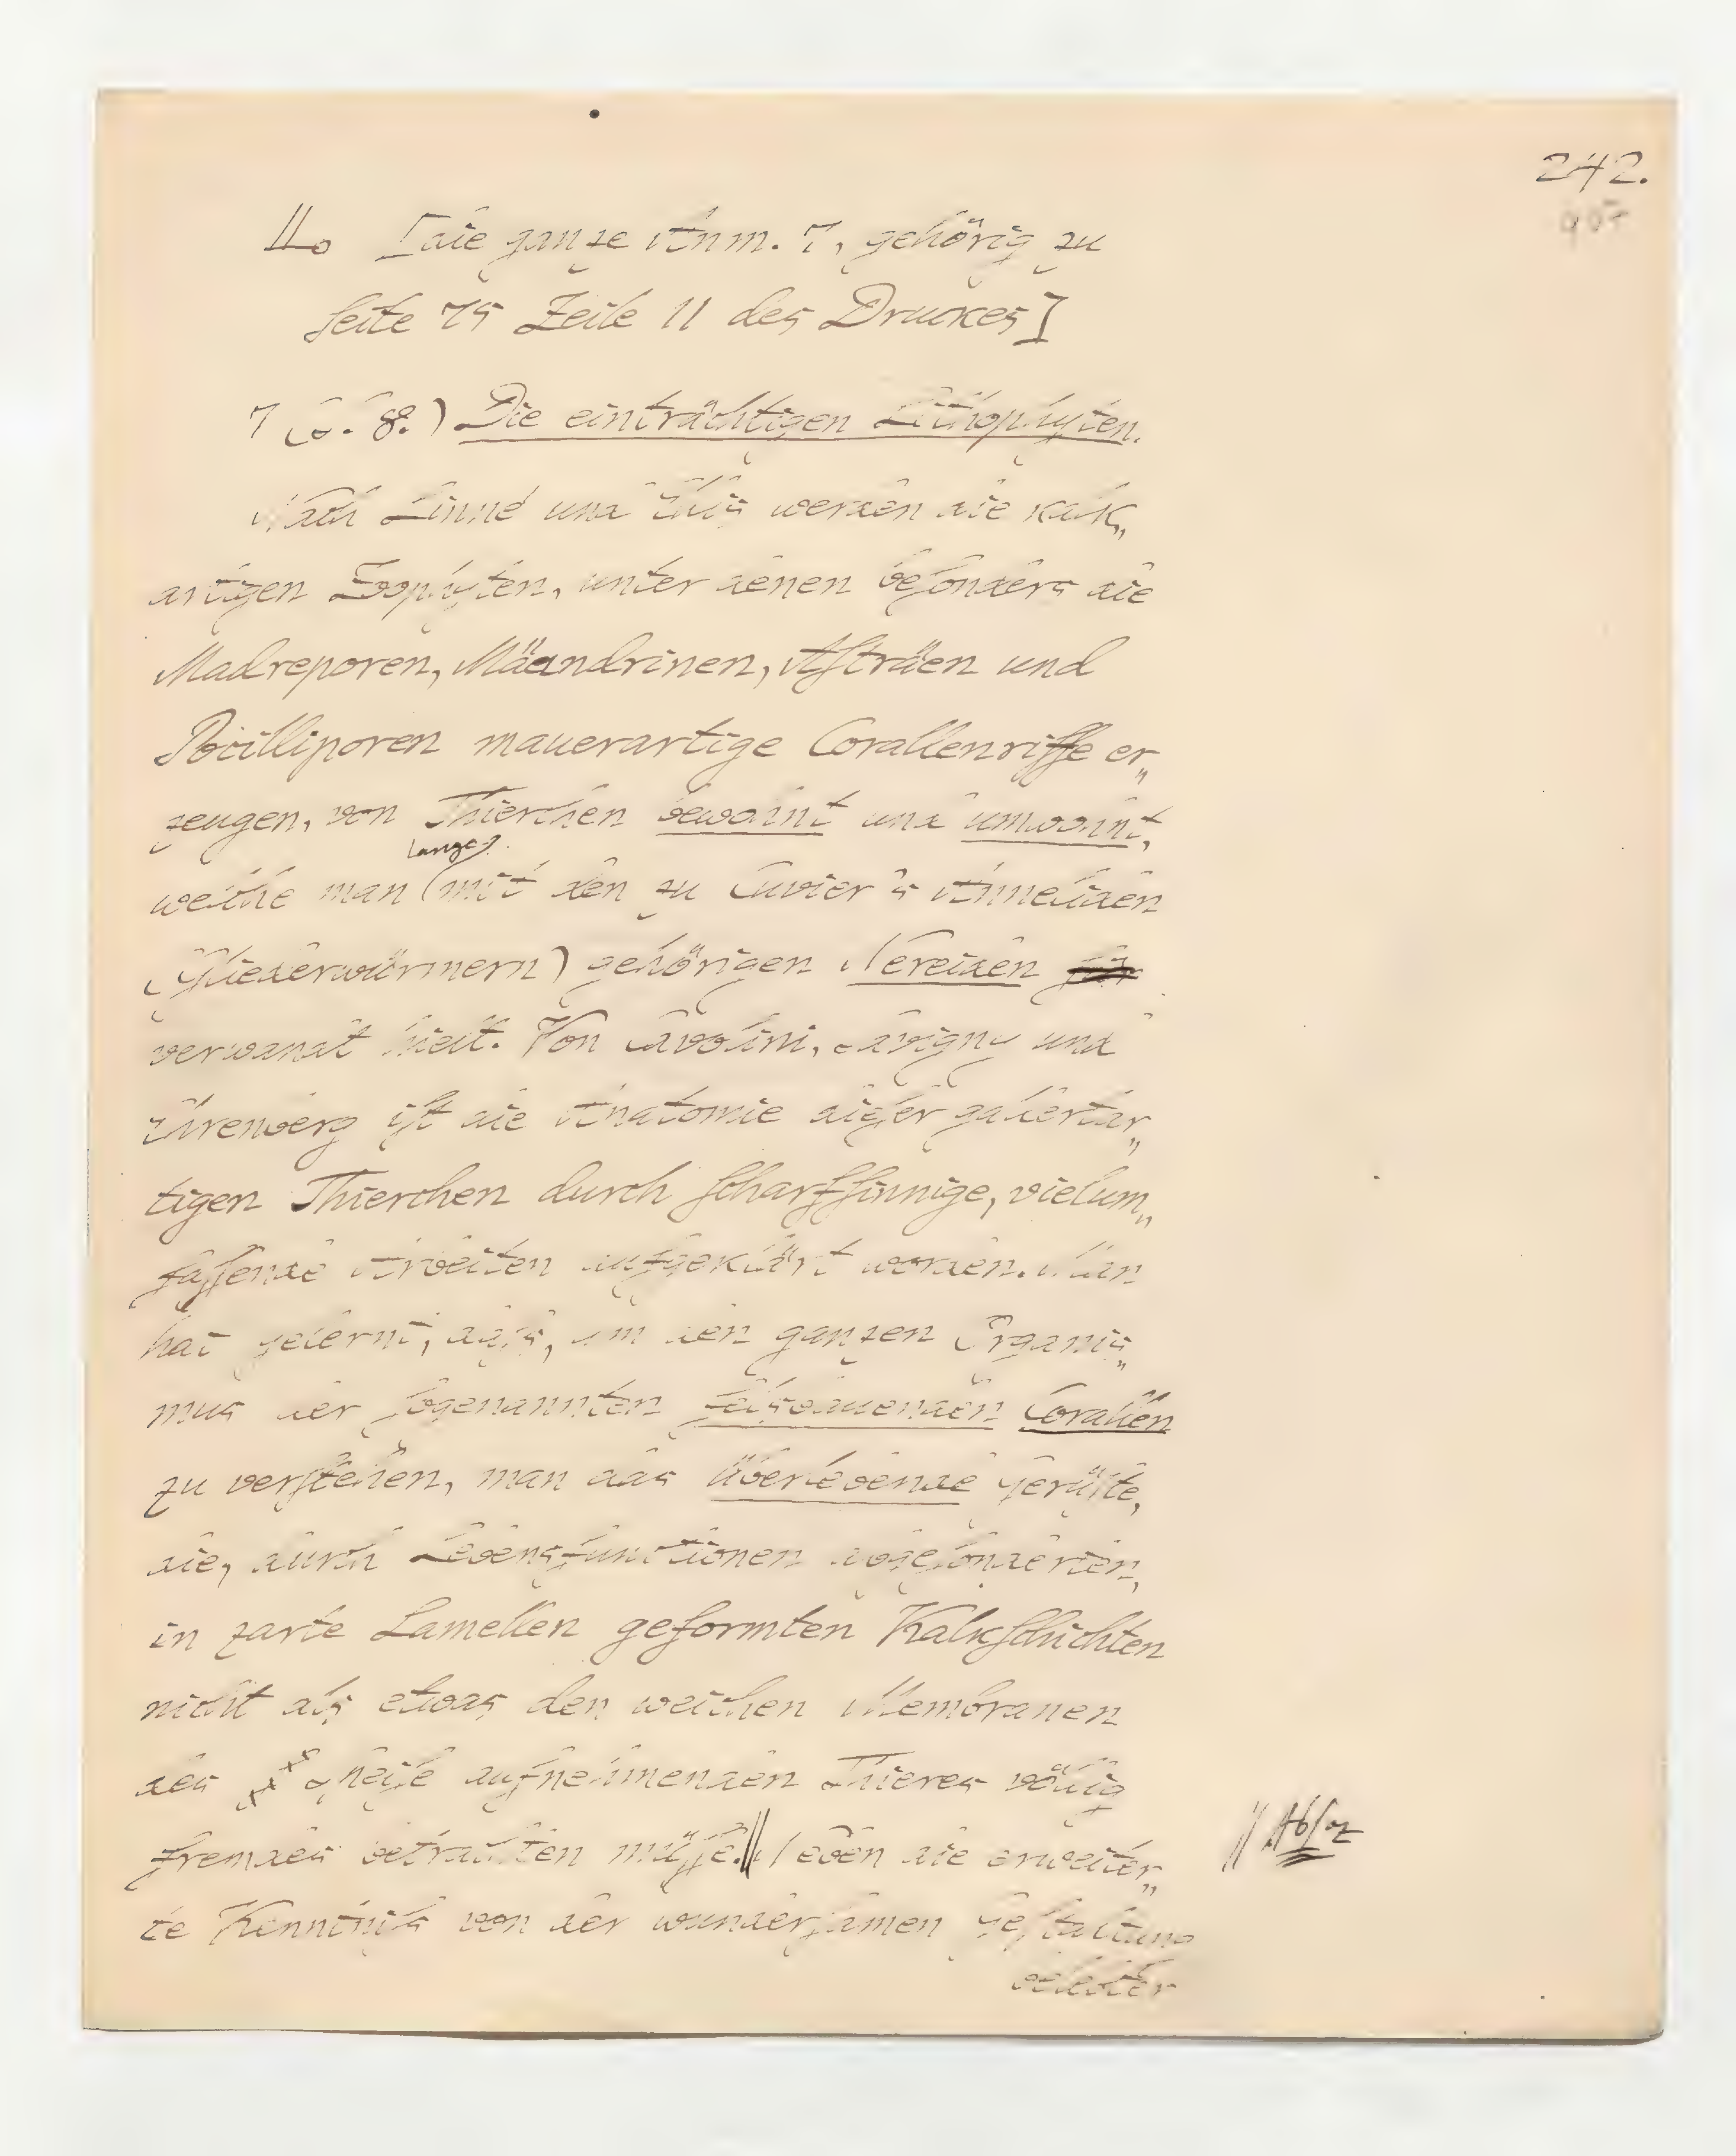 242.
[die ganze Anm. 7, gehörig zu
Seite 75 Zeile 11 des Druckes]
7 (S. 8.) Die einträchtigen Lithophyten.
Nach Linné und Ellis werden die kalk„
artigen Zoophyten, unter denen besonders die
Madreporen, Mäandrinen, Asträen und
Pocilliporen mauerartige Corallenriffe er„
zeugen, von Thierchen bewohnt und umwohnt,
lange
welche man (mit den zu Cuvier's Anneliden
(Gliederwürmern) gehörigen Nereiden für
verwandt hielt. Von Cavolini, Savigny und
Ehrenberg ist die Anatomie dieser gallertar„
tigen Thierchen durch scharfsinnige, vielum„
fassende Arbeiten aufgeklärt worden. Man
hat gelernt, daß, um den ganzen Organis„
mus der sogenannten felsbauenden Corallen
zu verstehen, man das überlebende Gerüste,
die, durch Lebensfunctionen abgesonderten,
in zarte Lamellen geformten Kalkschichten
nicht als etwas den weichen Membranen
des Speise aufnehmenden Thieres völlig
fremdes betrachten müsse. || Neben die erweiter„
|| Absaz
te Kenntniß von der wundersamen Gestaltung
belebter